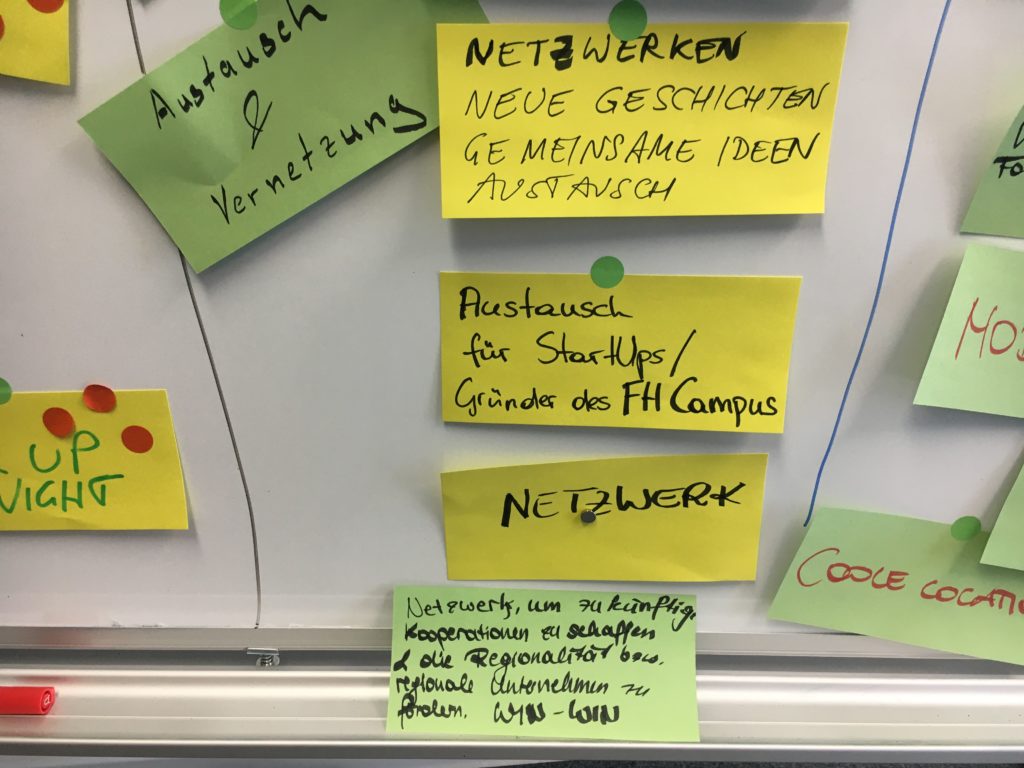 Austausch
&
Vernetzung
NETZWERKEN
NEUE GESCHICHTEN
GEMEINSAME IDEEN
AUSTAUSCH
Austausch
für StartUps/
Gründer des FH Campus
NETZWERK
Netzwerk, um zukünftige
Kooperationen zu schaffen
& die Regionalität bzw.
regionale Unternehmen zu
fördern. WIN-WIN
UP
NIGHT
COOLE LOCATIO